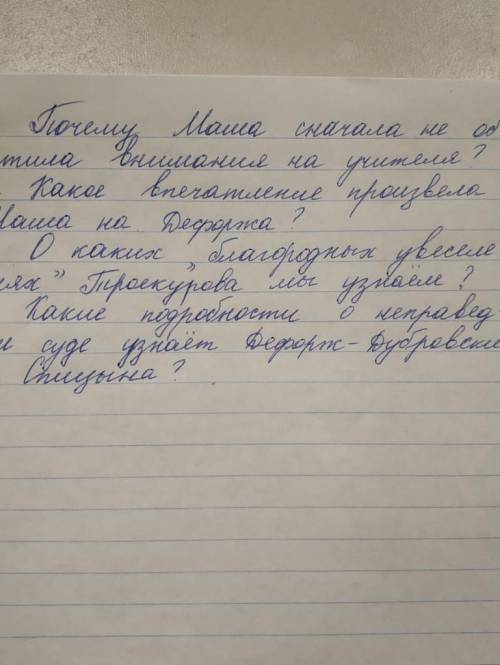 Почему Маша сначала не об
тила внимания на учителя?
Какое впечатление произвела
Маша на Дефоржа?
О каких "благородных увеселе
иях" Троекурова мы узнаём?
Какие подробности о неправед-
м суде узнаёт Дефорж-Дубровски
Спицына?